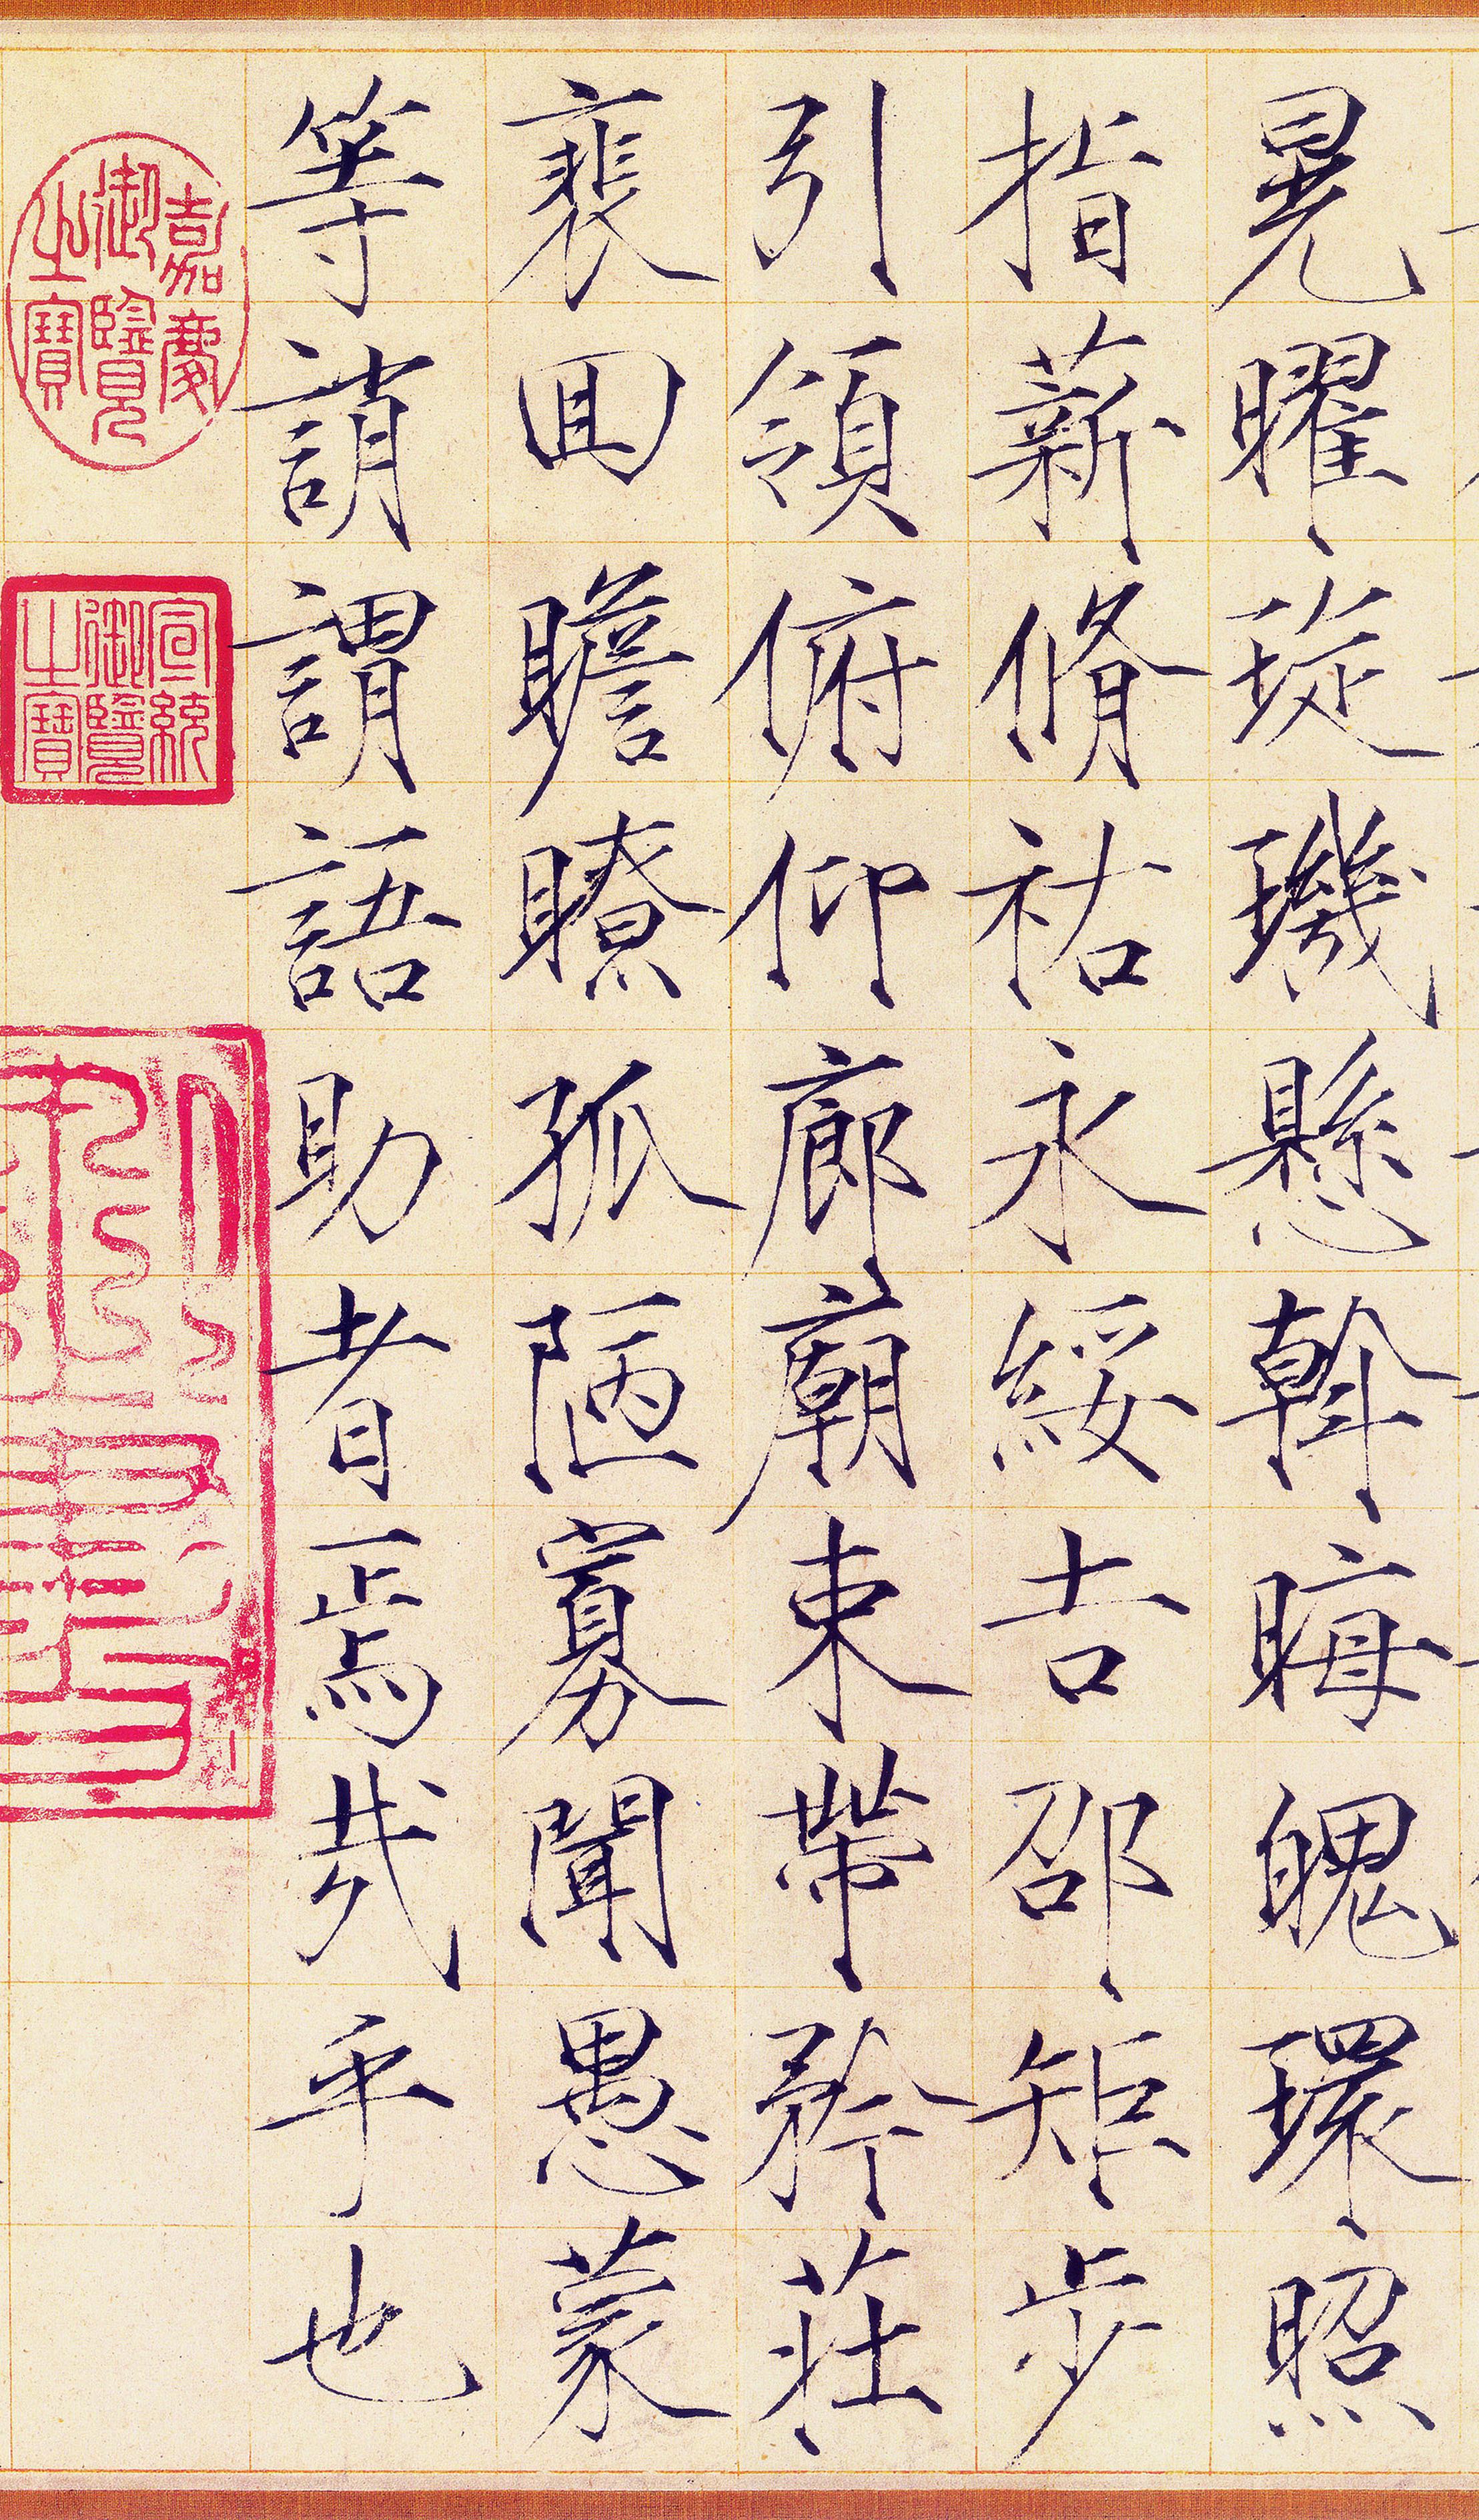 晃曜琁璣懸斡晦魄環照
指薪脩祐永綏吉邵矩步
引領俯仰廊廟束帶矜莊
裴回瞻瞭孤陋寡聞愚蒙
等誚謂語助者焉哉乎也
嘉慶御覽之寶
宣統御覽之寶